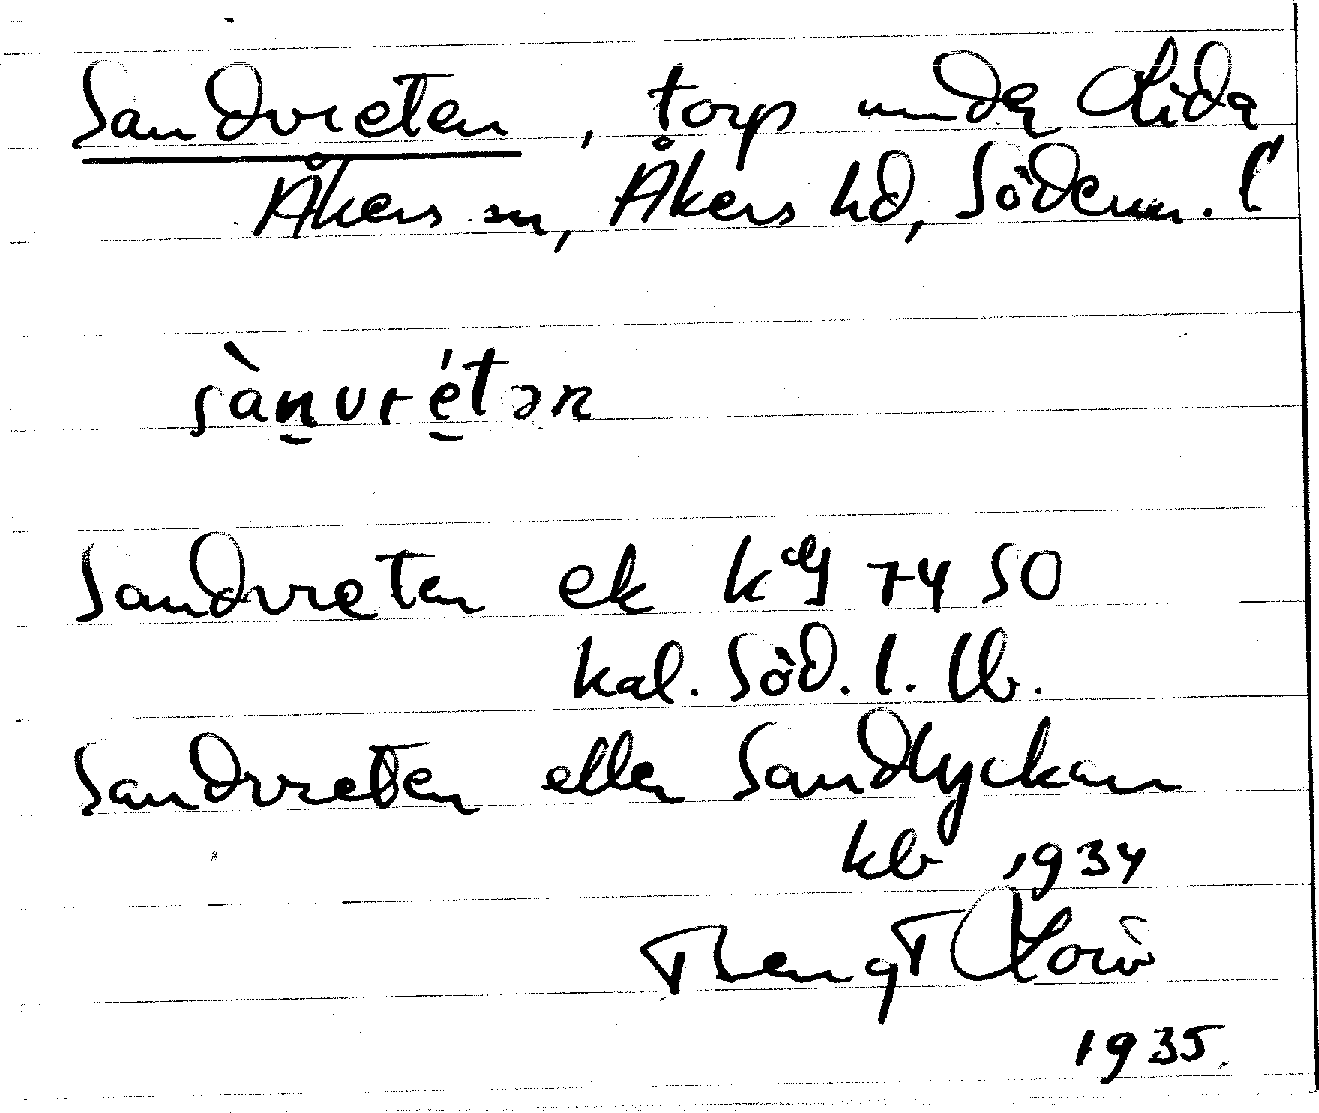 Sandvreten, torp under Lida
Åkers sn, Åkers hd, Söderm. l
sànvrétən
Sandvreten ek k 74 50
kal. Söd. l. lb.
Sandvreten eller Sandlyckan
kb 1934
Bengt
1935.